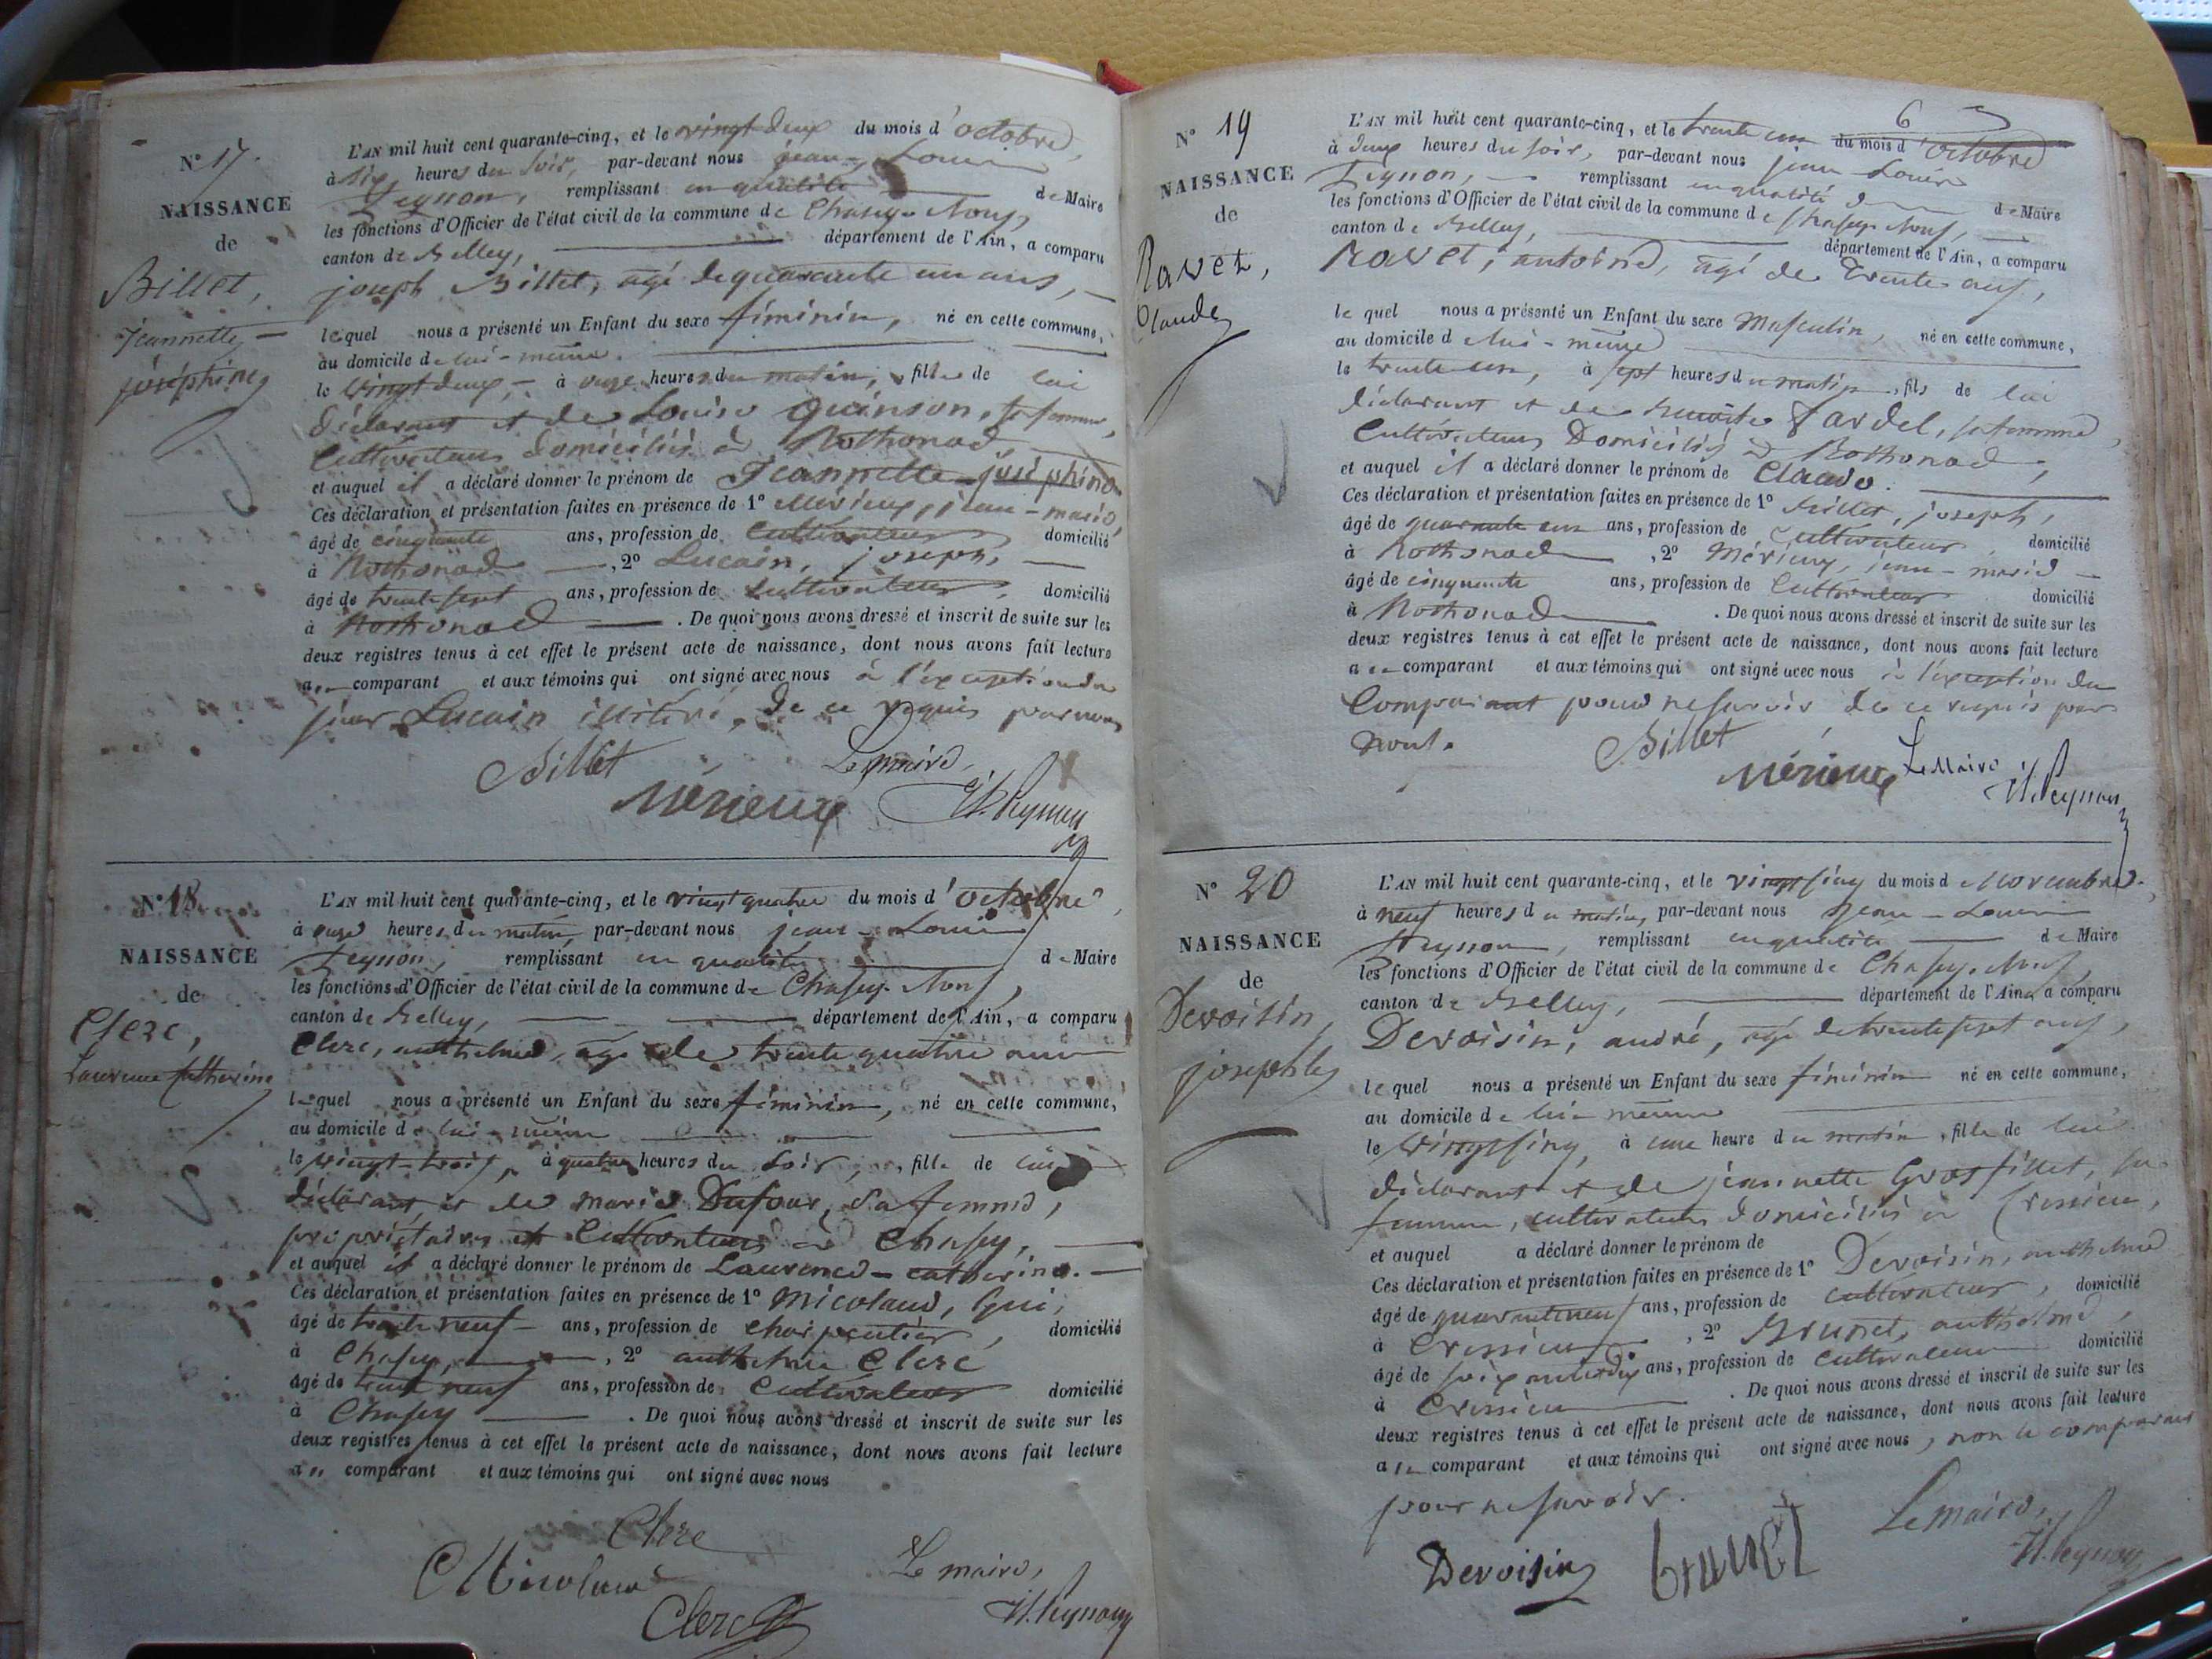 N° 17.
NAISSANCE
de
Billet,
Jeannette
joséphine
L'AN mil huit cent quarante-cinq, et le vingt deux du mois d'octobre,
à six heures du soir, par-devant nous jean-Louis
Peysson, remplissant en qualité de Maire
les fonctions d'Officier de l'état civil de la commune de Chasey-Nous,
canton de Belley, département de l'Ain, a comparu
joseph Billet, agé de quarante un ans,
lequel nous a présenté un Enfant du sexe féminin, né en cette commune,
au domicile de lui-même.
le vingt deux, à onze heures du matin, fille de lui
déclarant et de Louise quinson, sa femme,
Cultivateurs domiciliés à Rothonod,
et auquel il a déclaré donner le prénom de Jeannette joséphine
Ces déclaration et présentation faites en présence de 1° Mérieux, jean-marie,
âgé de cinquante ans, profession de Cultivateur, domicilié
à Rothonod, 2° Lucain, joseph,
âgé de trente sept ans, profession de Cultivateur, domicilié
à Rothonod. De quoi nous avons dressé et inscrit de suite sur les
deux registres tenus à cet effet le présent acte de naissance, dont nous avons fait lecture
au comparant et aux témoins qui ont signé avec nous à l'exception du
sieur Lucain illitéré, de ce requis par nous
Billet
Le maire,
Mérieux
N° 18.
NAISSANCE
de
Clerc,
Laurence Catherine
L'AN mil huit cent quarante-cinq, et le vingt quatre du mois d'octobre,
à onze heures du matin, par-devant nous jean-Louis
Peysson, remplissant en qualité de Maire
les fonctions d'Officier de l'état civil de la commune de Chasey-Nous,
canton de Belley, département de l'Ain, a comparu
Clerc, anthelme, agé de trente quatre ans
lequel nous a présenté un Enfant du sexe féminin, né en cette commune,
au domicile de lui-même
le vingt-trois, à quatre heures du soir, fille de lui
déclarant et de marie Dufour, sa femme,
propriétaires et Cultivateurs à Chasey,
et auquel il a déclaré donner le prénom de Laurence-catherine.
Ces déclaration et présentation faites en présence de 1° Micolaud, Gui,
âgé de trente neuf ans, profession de charpentier, domicilié
à Chasey, 2° anthelme Clerc
âgé de trente neuf ans, profession de Cultivateur domicilié
à Chasey. De quoi nous avons dressé et inscrit de suite sur les
deux registres tenus à cet effet le présent acte de naissance, dont nous avons fait lecture
au comparant et aux témoins qui ont signé avec nous
Clerc
Micolaud
Le maire,
Clerc
6
N° 19
NAISSANCE
de
Ravet,
Claude
L'AN mil huit cent quarante-cinq, et le trente un du mois d'octobre
à deux heures du soir, par-devant nous jean Louis
Peysson, remplissant en qualité de Maire
les fonctions d'Officier de l'état civil de la commune de Chasey-Nous,
canton de Belley, département de l'Ain, a comparu
Ravet, antoine, agé de trente ans,
lequel nous a présenté un Enfant du sexe Masculin, né en cette commune,
au domicile de lui-même
le trente un, à sept heures du matin, fils de lui
déclarant et de Benoite Tardel, sa femme,
Cultivateurs Domiciliés à Rothonod,
et auquel il a déclaré donner le prénom de Claude.
Ces déclaration et présentation faites en présence de 1° Billet, joseph,
âgé de quarante un ans, profession de Cultivateur domicilié
à Rothonod, 2° Mérieux, jean-marie
âgé de cinquante ans, profession de Cultivateur domicilié
à Rothonod. De quoi nous avons dressé et inscrit de suite sur les
deux registres tenus à cet effet le présent acte de naissance, dont nous avons fait lecture
au comparant et aux témoins qui ont signé avec nous à l'exception du
Comparant pour ne savoir de ce requis par
nous.
Billet
Mérieux
Le Maire
N° 20
NAISSANCE
de
Devoisin,
josephte
L'AN mil huit cent quarante-cinq, et le vingt cinq du mois de Novembre,
à neuf heures du matin, par-devant nous Jean-Louis
Peysson, remplissant en qualité de Maire
les fonctions d'Officier de l'état civil de la commune de Chasey-Nous,
canton de Belley, département de l'Ain, a comparu
Devoisin, andré, agé de trente sept ans,
lequel nous a présenté un Enfant du sexe féminin né en cette commune,
au domicile de lui même
le vingt cinq, à une heure du matin, fille de lui
déclarant et de jeannette Grosfillet, sa
femme, cultivateurs domiciliés à Cressieu,
et auquel a déclaré donner le prénom de
Ces déclaration et présentation faites en présence de 1° Devoisin, anthelme
âgé de quarante neuf ans, profession de cultivateur, domicilié
à Cressieu, 2° Brunet, anthelme,
âgé de soixante dix ans, profession de cultivateur domicilié
à Cressieu. De quoi nous avons dressé et inscrit de suite sur les
deux registres tenus à cet effet le présent acte de naissance, dont nous avons fait lecture
au comparant et aux témoins qui ont signé avec nous, non le comparant
pour ne savoir.
Le maire,
Devoisin
brunet